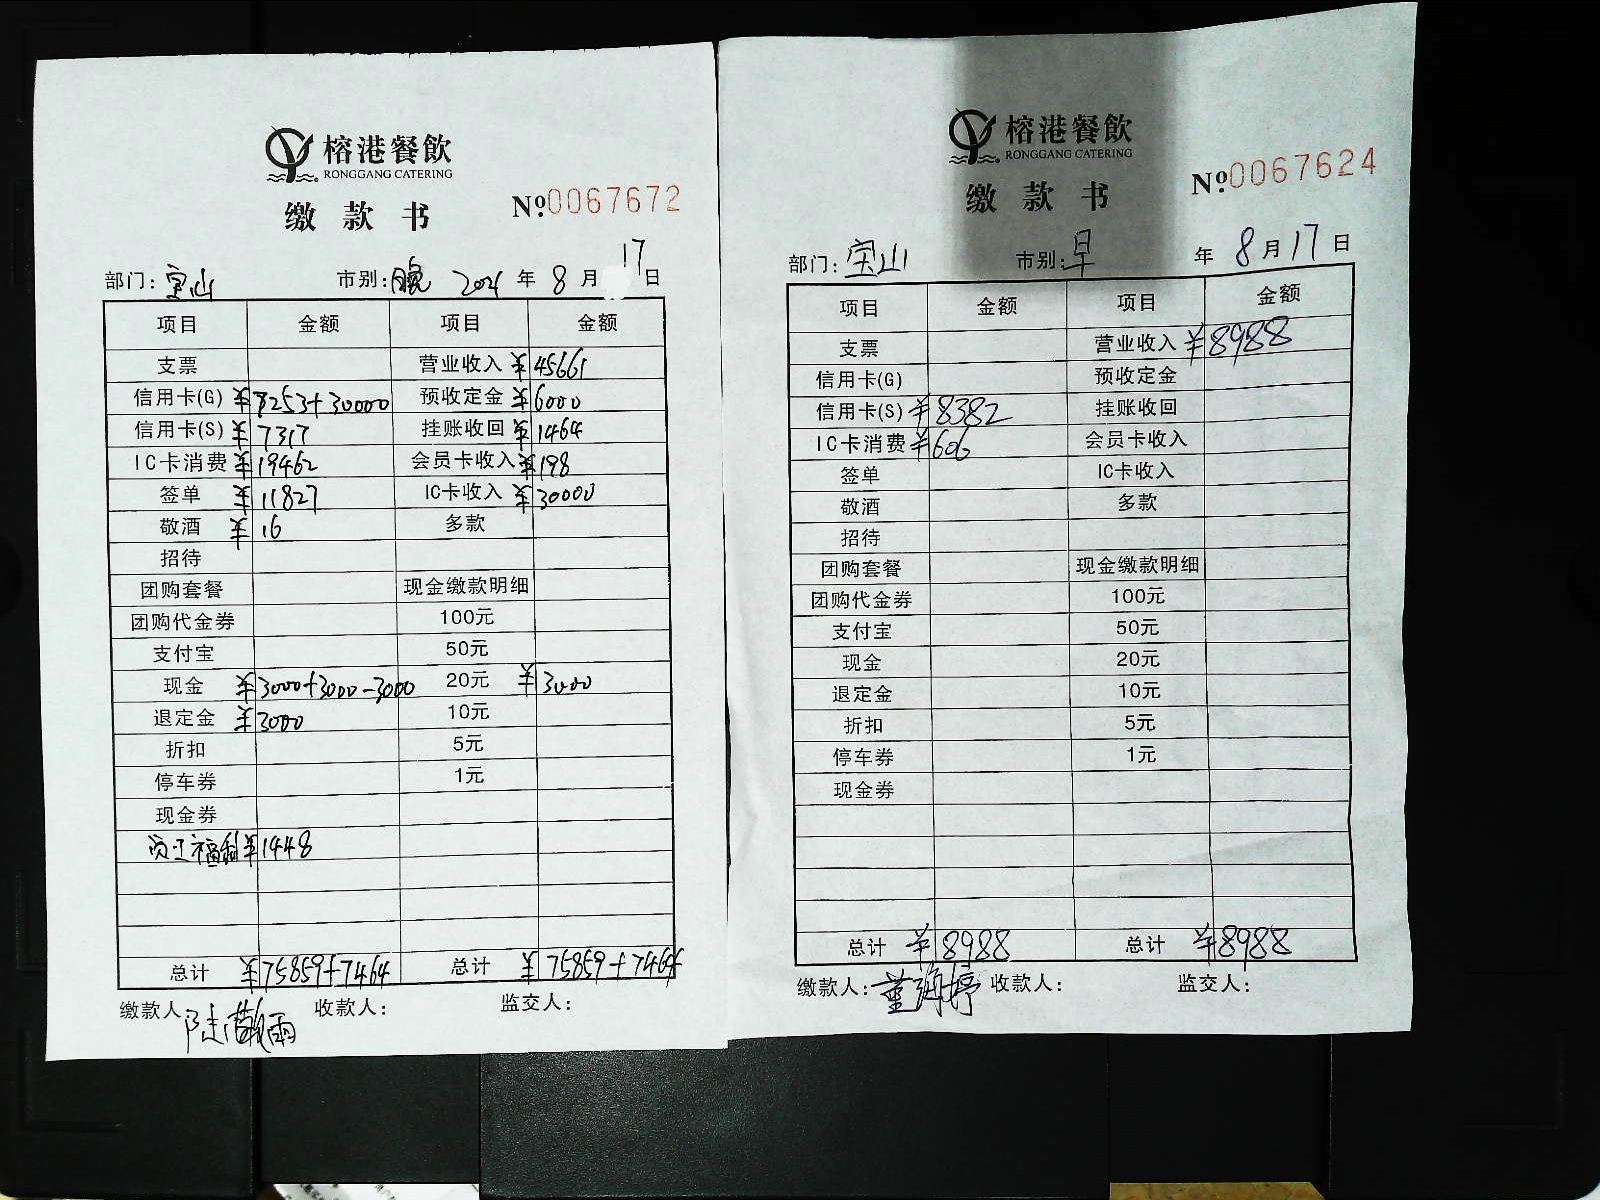 榕港餐飲
RONGGANG CATERING
缴款书
№0067672
部门:宝山 市别:晚 2024年8月17日
项目 金额 项目 金额
支票 营业收入 ¥45661
信用卡(G) ¥7253+30000 预收定金 ¥6000
信用卡(S) ¥7317 挂账收回 ¥1464
IC卡消费 ¥19462 会员卡收入 ¥198
签单 ¥11827 IC卡收入 ¥30000
敬酒 ¥16 多款
招待
团购套餐 现金缴款明细
团购代金券 100元
支付宝 50元
现金 ¥3000+3000-3000 20元 ¥3000
退定金 ¥3000 10元
折扣 5元
停车券 1元
现金券
员工福利 ¥1448
总计 ¥75859+7464 总计 ¥75859+7464
缴款人: 收款人: 监交人:
榕港餐飲
RONGGANG CATERING
缴款书
№0067624
部门:宝山 市别:早 年8月17日
项目 金额 项目 金额
支票 营业收入 ¥8988
信用卡(G) 预收定金
信用卡(S) ¥8382 挂账收回
IC卡消费 ¥606 会员卡收入
签单 IC卡收入
敬酒 多款
招待
团购套餐 现金缴款明细
团购代金券 100元
支付宝 50元
现金 20元
退定金 10元
折扣 5元
停车券 1元
现金券
总计 ¥8988 总计 ¥8988
缴款人:董海婷 收款人: 监交人: